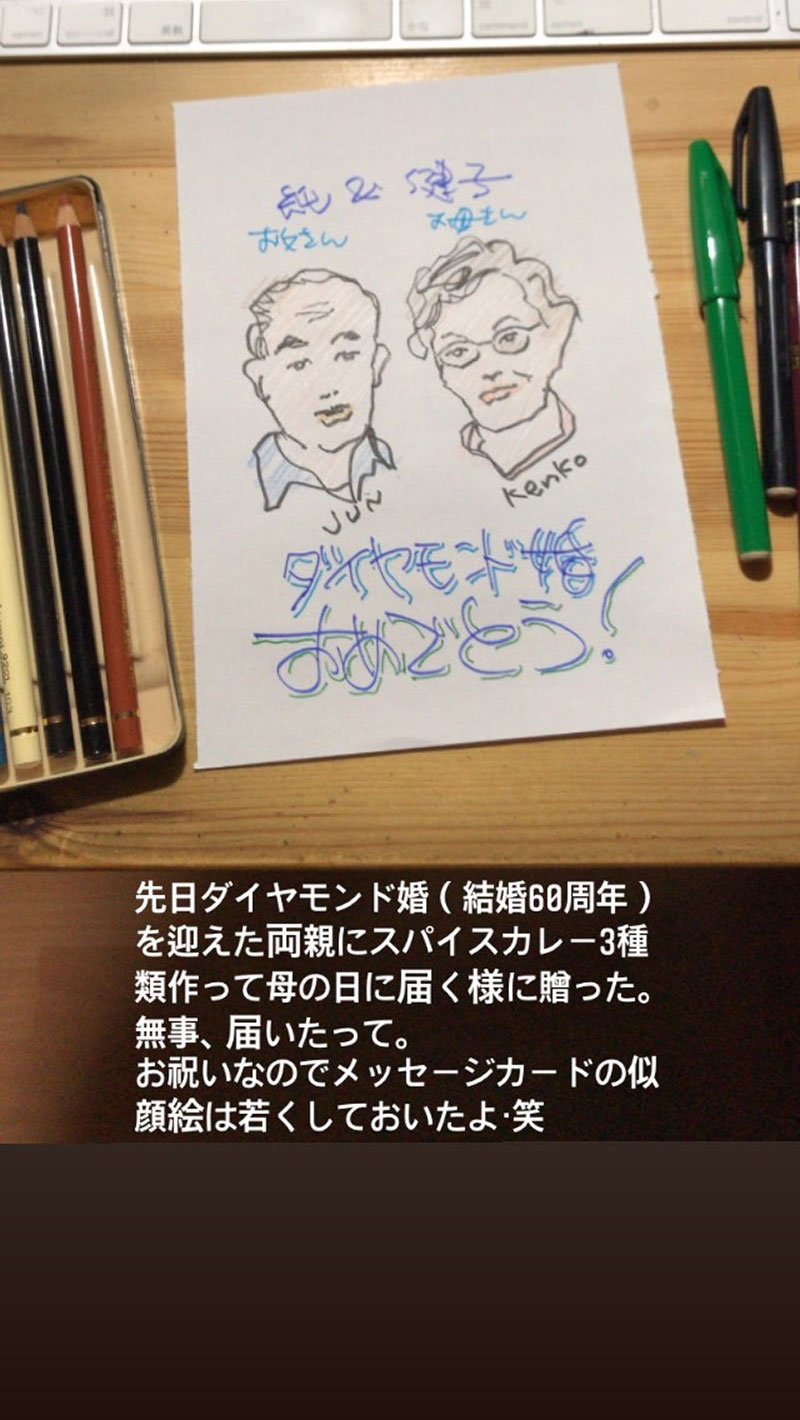 option
⌘
英数
かな
⌘
command
option
control
純 & 健子
お父さん
お母さん
Jun
Kenko
ダイヤモンド婚
おめでとう!
先日ダイヤモンド婚(結婚60周年)
を迎えた両親にスパイスカレー3種
類作って母の日に届く様に贈った。
無事、届いたって。
お祝いなのでメッセージカードの似
顔絵は若くしておいたよ·笑